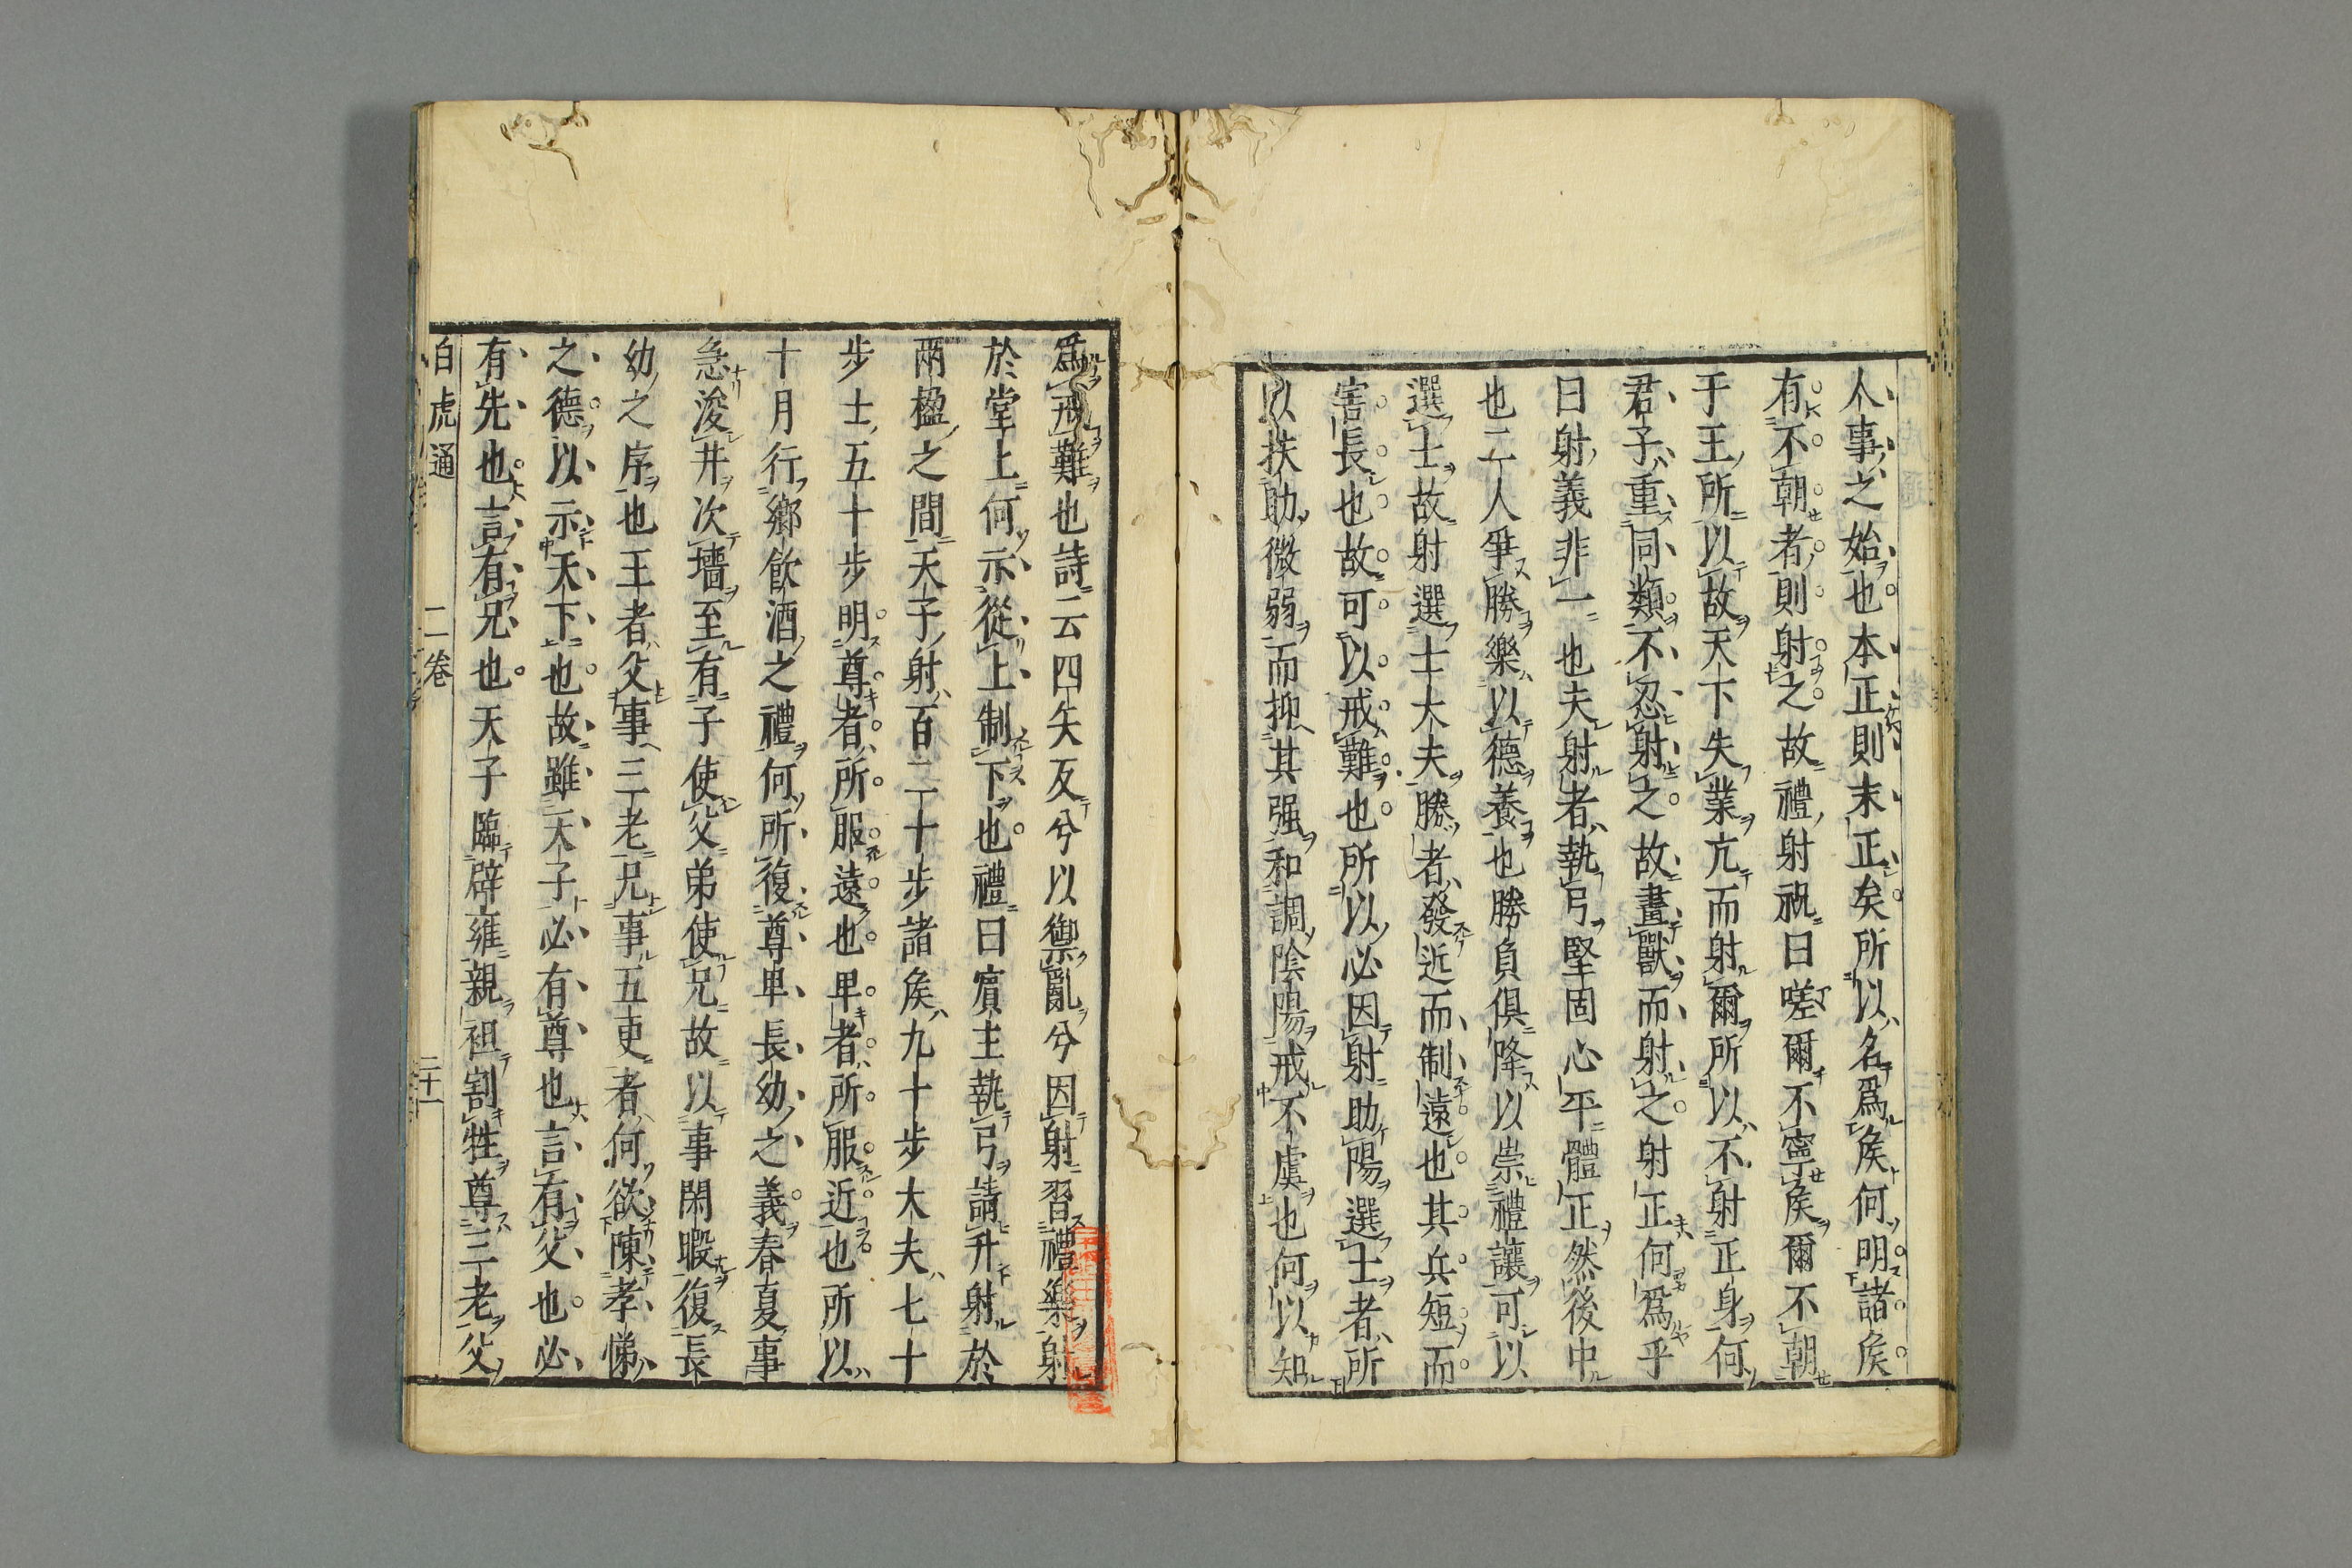 人事之始也本正則末正矣所以名爲矦何明諸矦
有不朝者則射之故禮射祝曰嗟爾不寧矦爾不朝
于王所以故天下失業亢而射爾所以不射正身何
君子重同類不忍射之故畫獸而射之射正何爲乎
曰射義非一也夫射者執弓堅固心平體正然後中
也二人爭勝樂以德養也勝負俱降以崇禮讓可以
選士故射選士大夫勝者發近而制遠也其兵短而
害長也故可以戒難也所以必因射助陽選士者所
以扶助微弱而抑其强和調陰陽戒不虞也何以知
爲戒難也詩云四矢反兮以禦亂兮因射習禮樂射
於堂上何示從上制下也禮曰賔主執弓請升射於
兩楹之間天子射百二十步諸矦九十步大夫七十
步士五十步明尊者所服遠也卑者所服近也所以
十月行鄉飮酒之禮何所復尊卑長幼之義春夏事
急浚井次墻至有子使父弟使兄故以事閑暇復長
幼之序也王者父事三老兄事五更者何欲陳孝悌
之德以示天下也故雖天子必有尊也言有父也必
有先也言有兄也天子臨辟雍親袒割牲尊三老父
白虎通 二卷 二十一